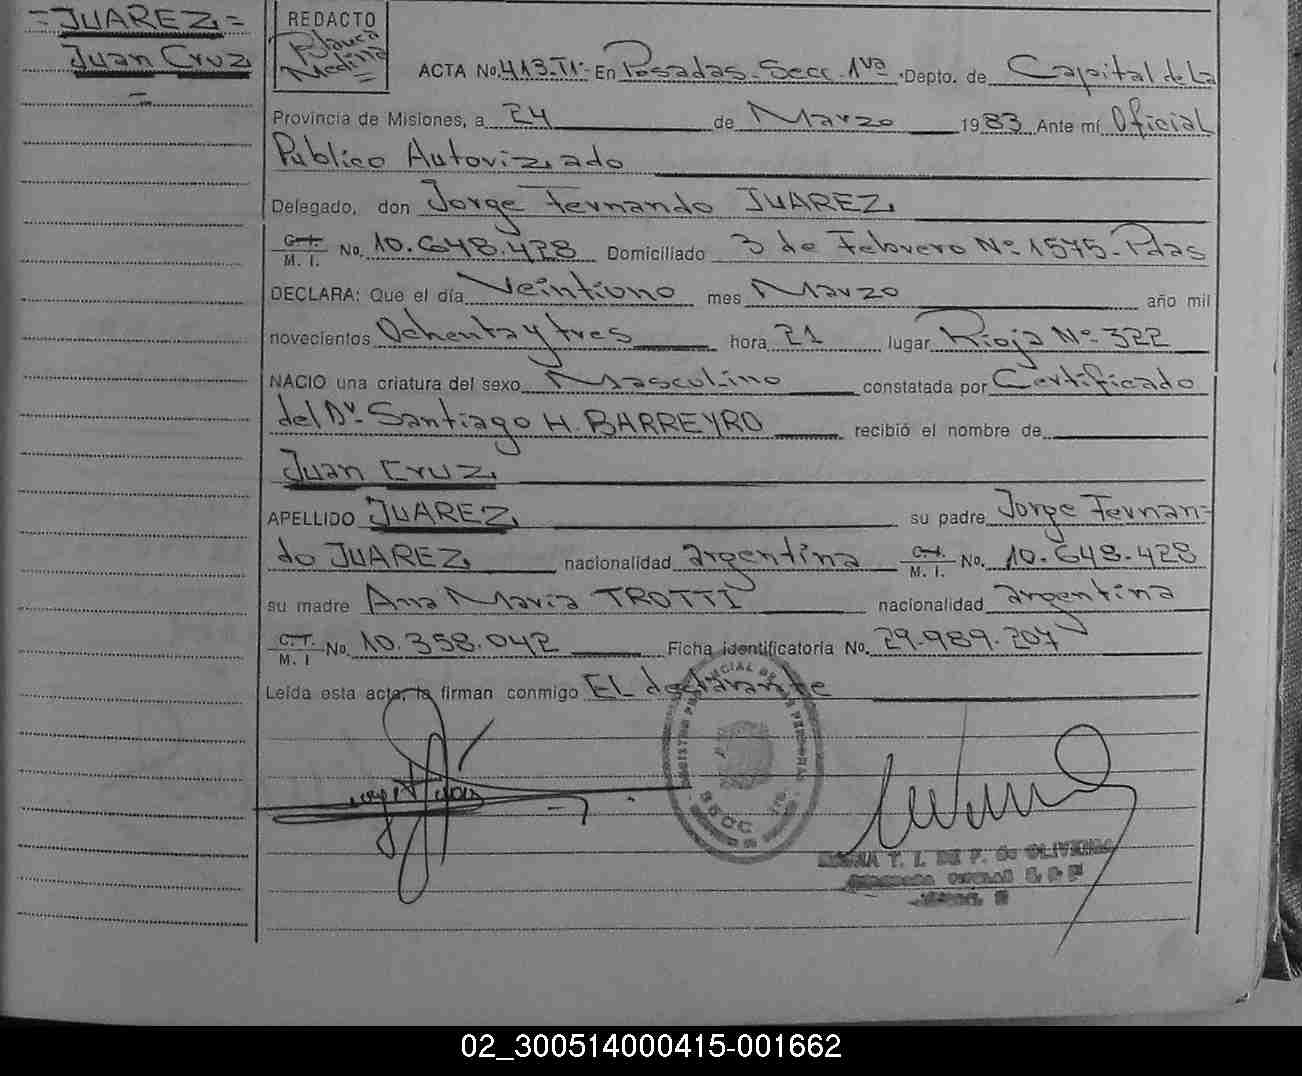 =JUAREZ=
Juan Cruz
REDACTO
Blanca
Medina
ACTA No. 413-TI- En Posadas-Secc. 1ra. Depto. de Capital de La
Provincia de Misiones, a 24 de Marzo 1983 Ante mí Oficial
Publico Autorizado
Delegado, don Jorge Fernando JUAREZ
C. I.
M. I. No. 10.648.428 Domiciliado 3 de Febrero Nº 1575- Pdas
DECLARA: Que el día Veintiuno mes Marzo año mil
novecientos Ochenta y tres hora 21 lugar Rioja Nº 322
NACIO una criatura del sexo Masculino constatada por Certificado
del Dr. Santiago H. BARREYRO recibió el nombre de
Juan Cruz
APELLIDO JUAREZ su padre Jorge Fernan-
do JUAREZ nacionalidad argentina C. I.
M. I. No. 10.648.428
su madre Ana Maria TROTTI nacionalidad argentina
C. I.
M. I No. 10.358.042 Ficha identificatoria No. 29.989.207
Leída esta acta, la firman conmigo EL declarante
REGISTRO PROVINCIAL DE LAS PERSONAS
SECC 1ra.
T. I. DE F. de OLIVEIRA
02_300514000415-001662